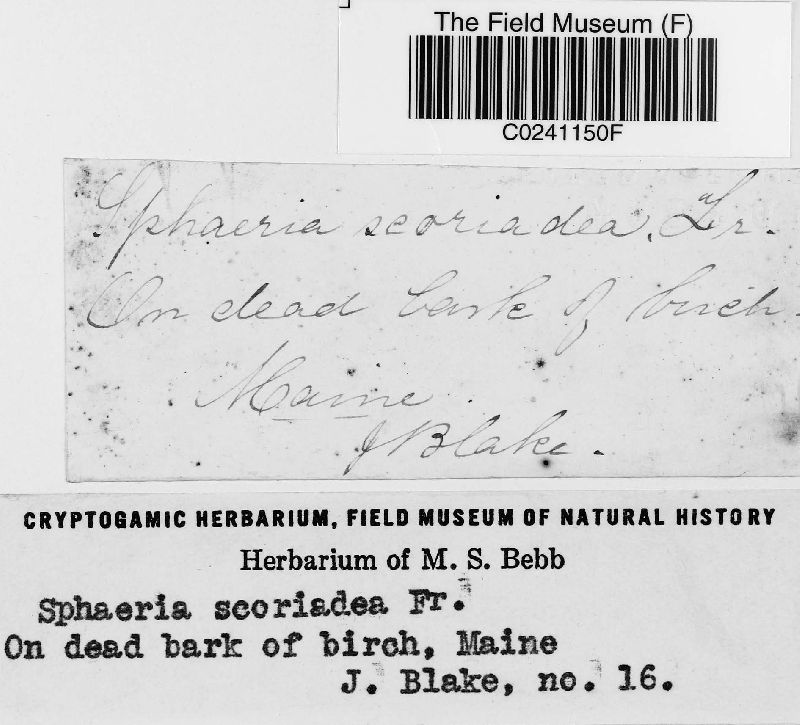 The Field Museum (F)
C0241150F
Sphaeria scoriadea. Fr.
On dead bark of birch.
Maine.
J Blake.
CRYPTOGAMIC HERBARIUM, FIELD MUSEUM OF NATURAL HISTORY
Herbarium of M. S. Bebb
Sphaeria scoriadea Fr.
On dead bark of birch, Maine
J. Blake, no. 16.